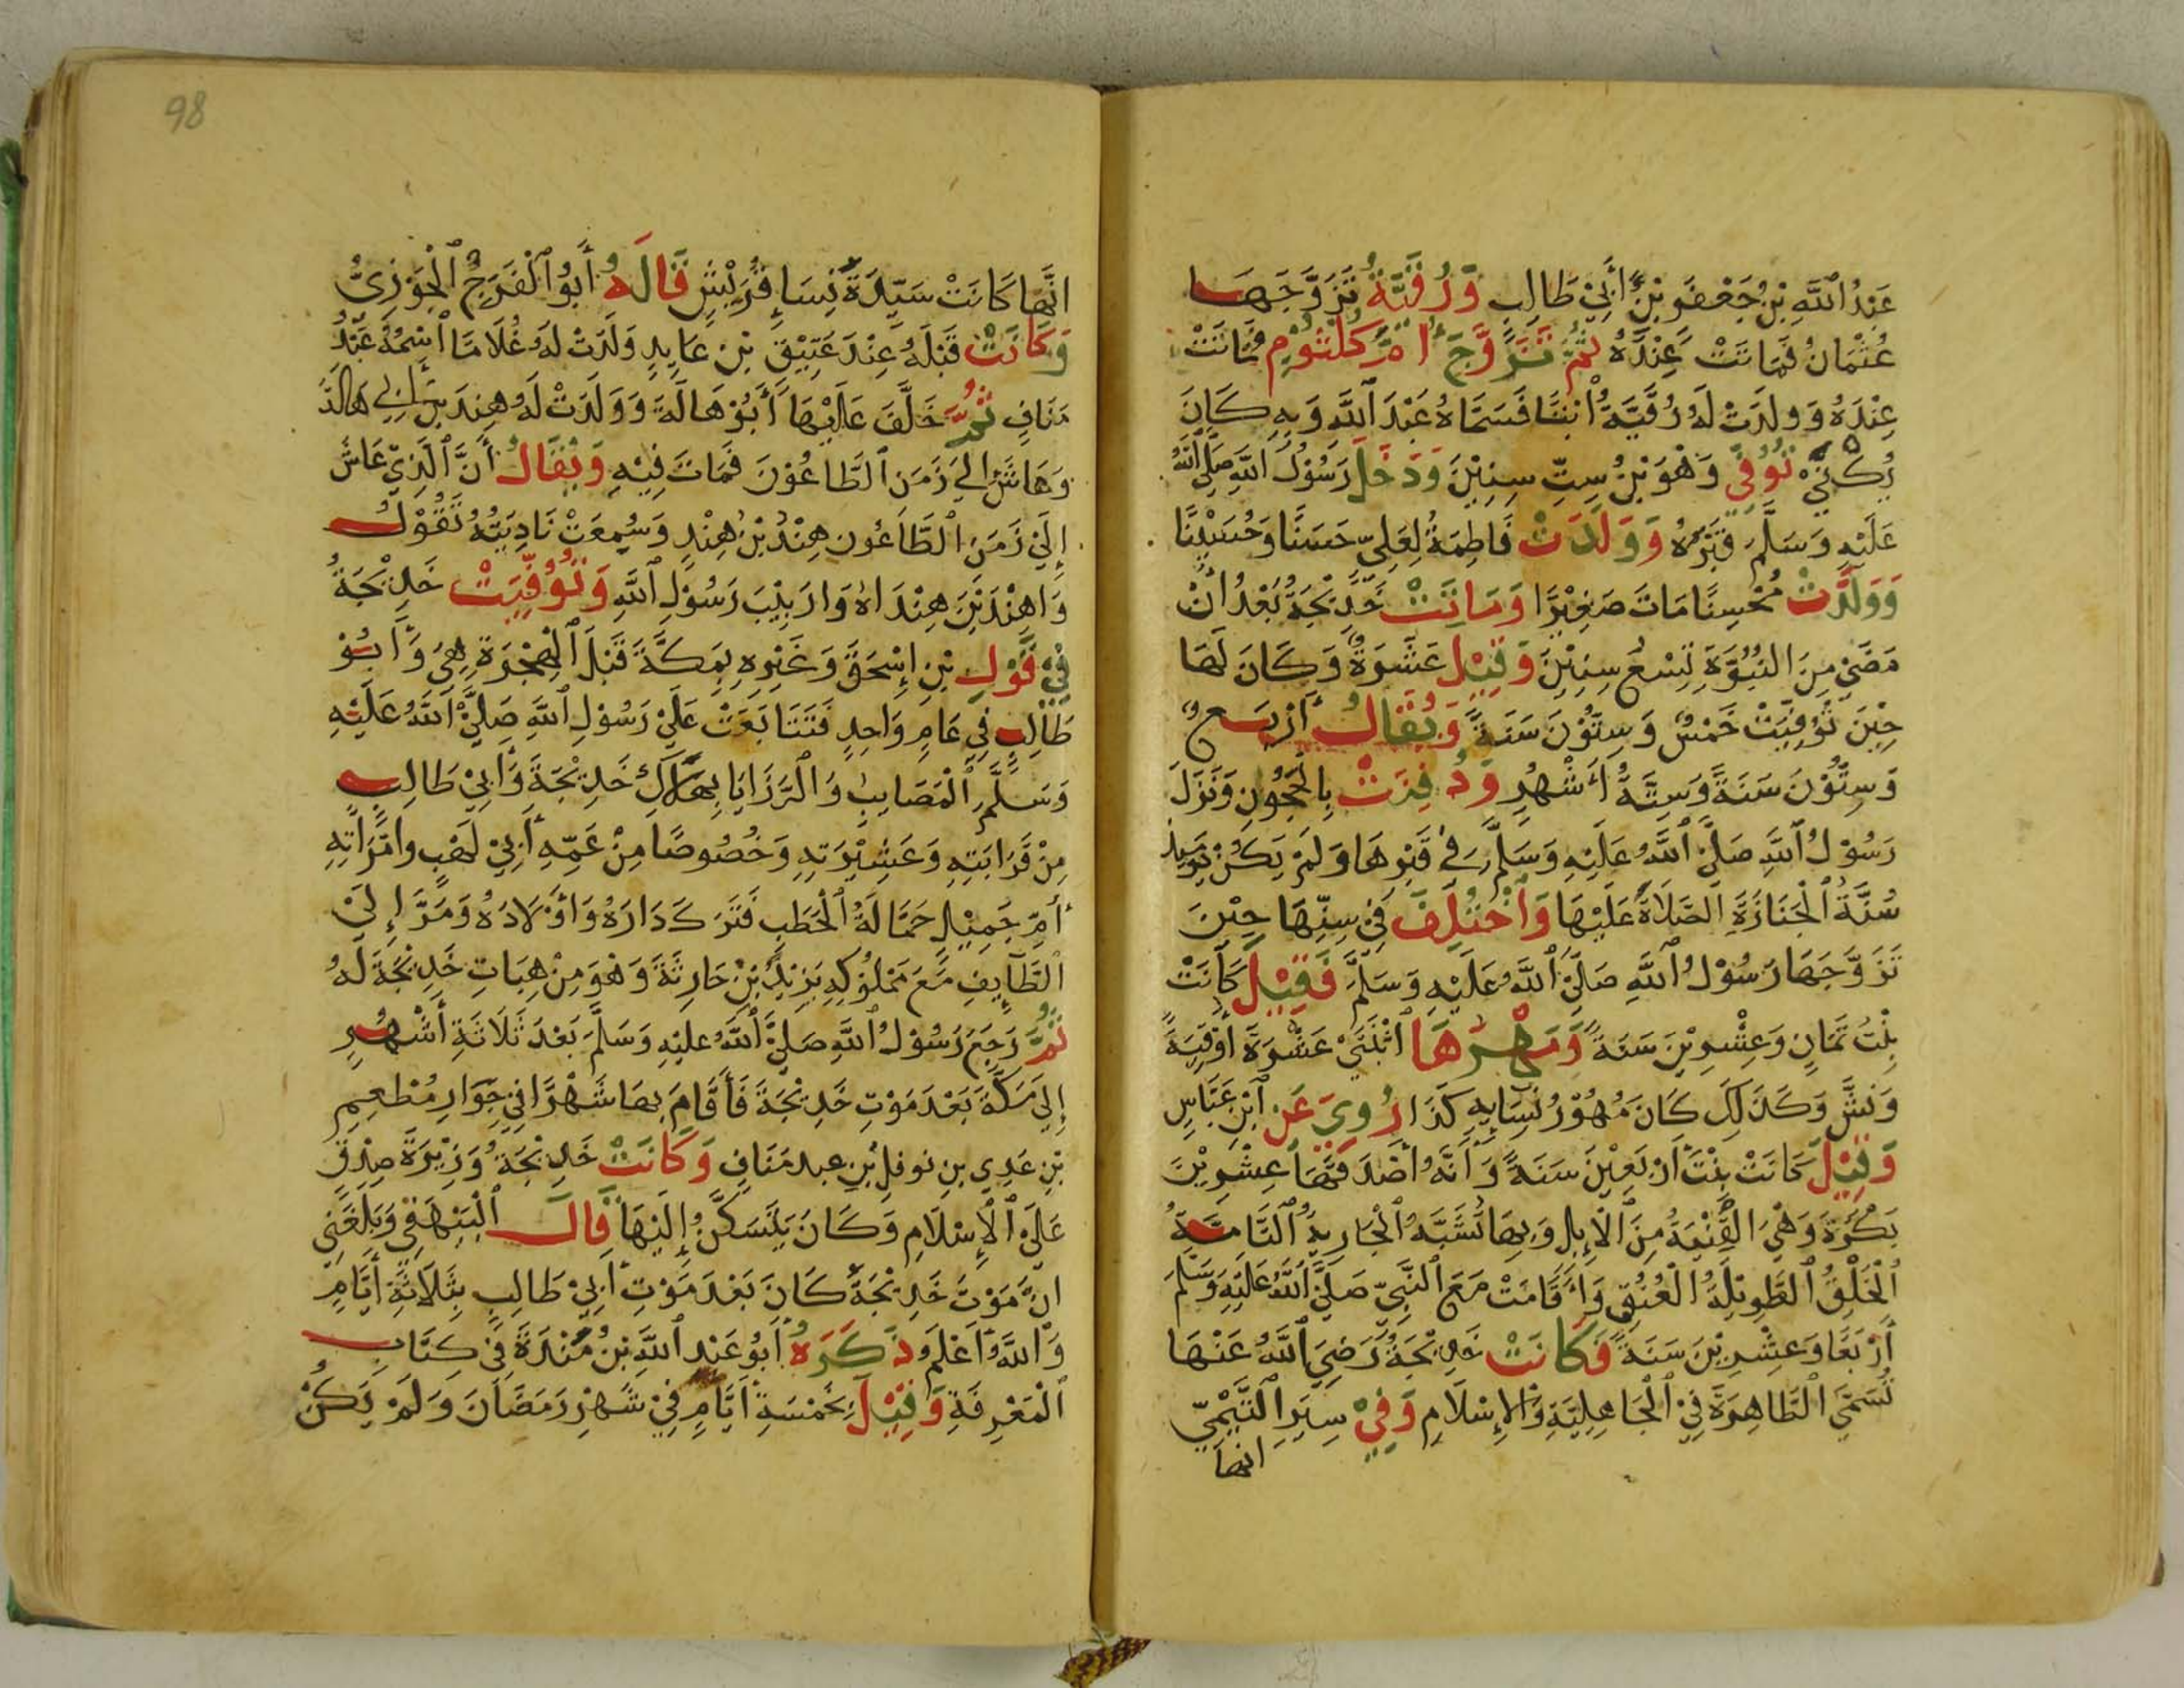 عَبْدُ اللَّهِ بْنُ جَعْفَرِ بْنِ أَبِيْ طَالِبٍ وَرُقَيَّةُ تَزَوَّجَهَا
عُثْمَانُ فَمَاتَتْ عِنْدَهُ ثُمَّ تَزَوَّجَ أُمَّ كُلْثُوْمٍ فَمَاتَتْ
عِنْدَهُ وَوَلَدَتْ لَهُ رُقَيَّةُ ابْنًا فَسَمَّاهُ عَبْدَ اللَّهِ وَبِهِ كَانَ
يُكْنَىٰ تُوُفِّيَ وَهْوَ بْنُ سِتِّ سِنِيْنَ وَدَخَلَ رَسُوْلُ اللَّهِ صَلَّى اللَّهُ
عَلَيْهِ وَسَلَّمَ قَبْرَهُ وَوَلَدَتْ فَاطِمَةُ لِعَلِيٍّ حَسَنًا وَحُسَيْنًا
وَوَلَدَتْ مُحْسِنًا مَاتَ صَغِيْرًا وَمَاتَتْ خَدِيْجَةُ بَعْدَ أَنْ
مَضَىٰ مِنَ النُّبُوَّةِ تِسْعُ سِنِيْنَ وَقِيْلَ عَشَرَةٌ وَكَانَ لَهَا
حِيْنَ تُوُفِّيَتْ خَمْسٌ وَسِتُّوْنَ سَنَةً وَيُقَالُ أَرْبَعٌ
وَسِتُّوْنَ سَنَةً وَسِتَّةُ أَشْهُرٍ وَدُفِنَتْ بِالْحَجُوْنِ وَنَزَلَ
رَسُوْلُ اللَّهِ صَلَّى اللَّهُ عَلَيْهِ وَسَلَّمَ فِي قَبْرِهَا وَلَمْ يَكُنْ يَوْمَئِذٍ
سُنَّةُ الْجَنَازَةِ الصَّلَاةُ عَلَيْهَا وَاخْتُلِفَ فِيْ سِنِّهَا حِيْنَ
تَزَوَّجَهَا رَسُوْلُ اللَّهِ صَلَّى اللَّهُ عَلَيْهِ وَسَلَّمَ فَقِيْلَ كَانَتْ
بِنْتُ ثَمَانٍ وَعِشْرِيْنَ سَنَةً وَمَهْرُهَا اثْنَتَيْ عَشْرَةَ أُوْقِيَةً
وَنَشَّ وَكَذٰلِكَ كَانَ مُهُوْرُ نِسَايِهِ كَذَا رُوِيَ عَنِ ابْنِ عَبَّاسٍ
وَقِيْلَ كَانَتْ بِنْتَ أَرْبَعِيْنَ سَنَةً وَأَنَّهُ أَصْدَقَهَا عِشْرِيْنَ
بَكْرَةً وَهْيَ الْفَتِيَّةُ مِنَ الْإِبِلِ وَبِهَا تُشَبَّهُ الْجَارِيَةُ التَّامَّةُ
الْخَلْقِ الطَّوِيْلَةُ الْعُنُقِ وَأَقَامَتْ مَعَ النَّبِيِّ صَلَّى اللَّهُ عَلَيْهِ وَسَلَّمَ
أَرْبَعًا وَعِشْرِيْنَ سَنَةً فَكَانَتْ خَدِيْجَةُ رَضِيَ اللَّهُ عَنْهَا
تُسَمَّىٰ الطَّاهِرَةَ فِيْ الْجَاهِلِيَّةِ وَالْإِسْلَامِ وَفِيْ سِيَرِ التَّيْمِيِّ
انها
98
انَّهَا كَانَتْ سَيِّدَةَ نِسَاءِ قُرَيْشٍ قَالَهُ أَبُو الْفَرَجِ الْجَوْزِيُّ
وَكَانَتْ قَبْلَهُ عِنْدَ عَتِيْقِ بْنِ عَايِدٍ وَلَدَتْ لَهُ غُلَامًا اسْمُهُ عَبْدُ
مَنَافٍ ثُمَّ خَلَفَ عَلَيْهَا أَبُوْ هَالَةَ وَوَلَدَتْ لَهُ هِنْدَ بن أبي هَالَةَ
وَعَاشَ إِلَىٰ زَمَنِ الطَّاعُوْنَ فَمَاتَ فِيْهِ وَيُقَالُ أَنَّ الَّذِيْ عَاشَ
إِلَىٰ زَمَنِ الطَّاعُونِ هِنْدُ بْنُ هِنْدٍ وَسُمِعَتْ نَادِبَتُهُ تَقُوْلُ
وَاهِنْدَ بْنَ هِنْدَاهُ وَارَبِيْبَ رَسُوْلِ اللَّهِ وَتُوُفِّيَتْ خَدِيْجَةُ
فِيْ قَوْلِ بْنِ إِسْحٰقَ وَغَيْرِهِ بِمَكَّةَ قَبْلَ الْهِجْرَةِ هِيَ وَأَبُوْ
طَالِبٍ فِي عَامٍ وَاحِدٍ فَتَتَابَعَتْ عَلَىٰ رَسُوْلِ اللَّهِ صَلَّى اللَّهُ عَلَيْهِ
وَسَلَّمَ الْمَصَايِبُ وَالرَّزَايَا بِهَلَاكِ خَدِيْجَةَ وَأَبِيْ طَالِبٍ
مِنْ قَرَابَتِهِ وَعَشِيْرَتِهِ وَخُصُوصًا مِنْ عَمِّهِ أَبِيْ لَهْبٍ وَامْرَأَتِهِ
أُمِّ جَمِيْلٍ حَمَّالَةُ الْحَطَبِ فَتَرَكَ دَارَهُ وَأَوْلَادَهُ وَمَرَّ إِلَىٰ
الطَّآيِفِ مَعَ مَمْلُوْكِهِ يَزِيْدَ بْنِ حَارِثَةَ وَهْوَ مِنْ هِبَاتِ خَدِيْجَةَ لَهُ
ثُمَّ رَجَعَ رَسُوْلُ اللَّهِ صَلَّى اللَّهُ عَلَيْهِ وَسَلَّمَ بَعْدَ ثَلَاثَةِ أَشْهُرٍ
إِلَىٰ مَكَّةَ بَعْدَ مَوْتِ خَدِيْجَةَ فَأَقَامَ بِهَا شَهْرًا فِيْ جِوَارِ مُطْعِمِ
بْنِ عَدِيِ بنِ نوفلِ بْنِ عبد مَنَافٍ وَكَانَتْ خَدِيْجَةُ وَزِيْرَةَ صِدْقٍ
عَلَىٰ الْإِسْلَامِ وَكَانَ يَتَسَكَّنُ إِلَيْهَا قَالَ الْبَيْهَقِيْ وَبَلَغَنِي
انَّ مَوْتَ خَدِيْجَةَ كَانَ بَعْدَ مَوْتِ أَبِيْ طَالِبٍ بِثَلَاثَةِ أَيَّامٍ
وَاللَّهُ أَعْلَمُ ذَكَرَهُ أَبُوْ عَبْدِ اللَّهِ بْنُ مَنْدَةَ فِيْ كِتَابِ
الْمَعْرِفَةِ وَقِيْلَ بِخَمْسَةِ أَيَّامٍ فِيْ شَهْرِ رَمَضَانَ وَلَمْ يَكُنْ